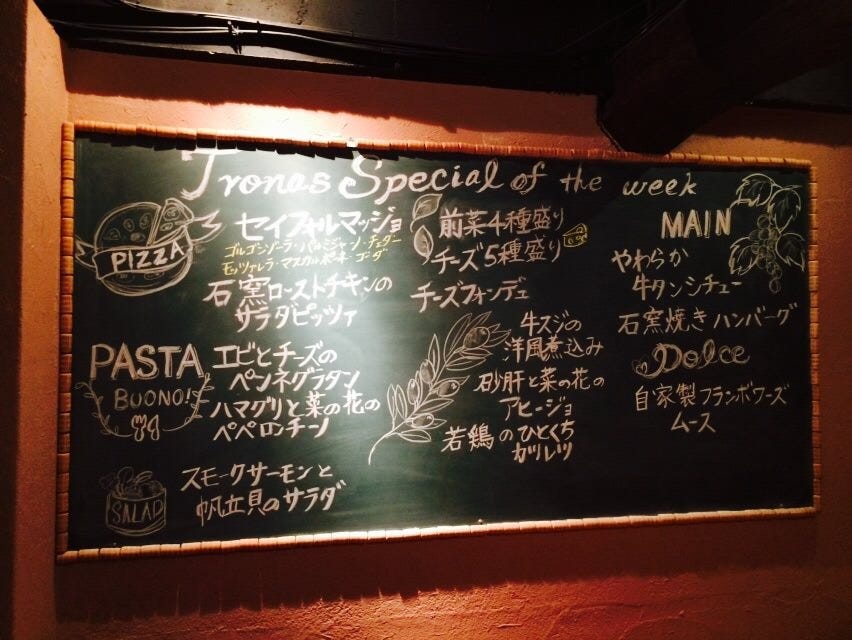 Tronas Special of the week
PIZZA
セイフォルマッジョ
ゴルゴンゾーラ・パルミジャーノ・チェダー
モッツァレラ・マスカルポーネ・ゴーダ
石窯ローストチキンの
サラダピッツァ
PASTA
BUONO!
エビとチーズの
ペンネグラタン
ハマグリと菜の花の
ペペロンチーノ
SALAD
スモークサーモンと
帆立貝のサラダ
前菜4種盛り
チーズ5種盛り
チーズフォンデュ
牛スジの
洋風煮込み
砂肝と菜の花の
アヒージョ
若鶏のひとくち
カツレツ
MAIN
やわらか
牛タンシチュー
石窯焼きハンバーグ
Dolce
自家製フランボワーズ
ムース